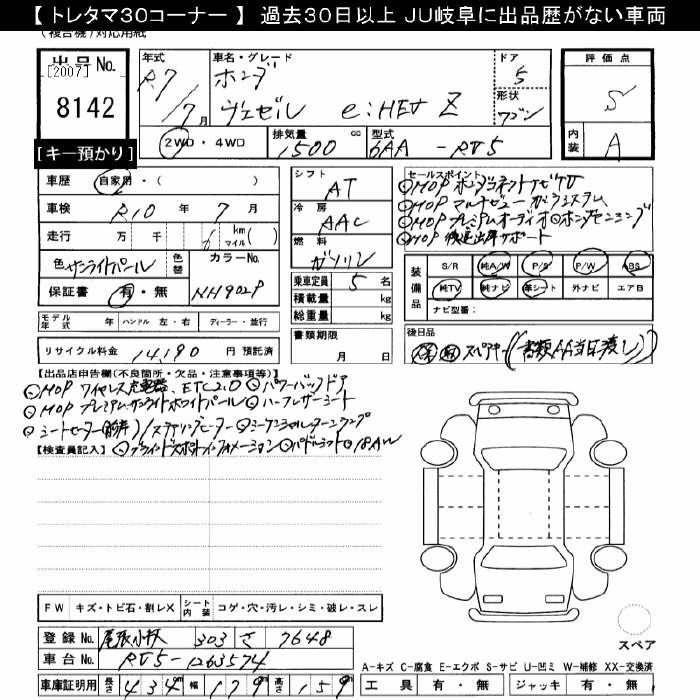 【 トレタマ30コーナー 】 過去30日以上 JU岐阜に出品歴がない車両
(複合機)対応用紙
出品 No. [2007] 8142
【キー預かり】
年式 R7/7月
車名・グレード ホンダ ヴェゼル e:HEV Z
ドア 5
形状 ワゴン
2WD・4WD
排気量 1500 cc
型式 6AA - RV5
評価点 S
内装 A
車歴 自家用・( )
車検 R10 年 7 月
走行 万 千 6 km マイル( )
色 サンライトパール 色替 カラーNo. NH902P
保証書 有・無
モデル年式 年 ハンドル 左・右 ディーラー・並行
リサイクル料金 14,190 円 預託済
シフト AT
冷房 AAC
燃料 ガソリン
乗車定員 5 名
積載量 kg
総重量 kg
書類期限 月 日
セールスポイント
○MOP ホンダコネクトナビTV
○MOP マルチビューカメラシステム
○MOP プレミアムオーディオ ○ホンダセンシング
○MOP 後退出庫サポート
装備品
S/R 純A/W P/S P/W ABS
純TV 純ナビ 革シート 外ナビ エアB
ナビ型番:
後日品
保 取 スペアキー (書類AA当日渡し)
【出品店申告欄(不良箇所・欠品・注意事項等)】
○MOP ワイヤレス充電器、ETC2.0 ○パワーバックドア
○MOP プレミアムサンライトホワイトパール ○ハーフレザーシート
○シートヒーター(前席)/ステアリングヒーター ○シーケンシャルターンランプ
○ブラインドスポットインフォメーション ○パドルシフト ○18AW
【検査員記入】
FW キズ・トビ石・割レX シート内装 コゲ・穴・汚レ・シミ・破レ・スレ
登録 No. 尾張小牧 303 さ 7648
車台 No. RV5-1263574
車庫証明用 長さ 434cm 幅 179cm 高さ 159cm
スペア
A-キズ C-腐食 E-エクボ S-サビ U-凹ミ W-補修 XX-交換済
工具 有・無 ジャッキ 有・無